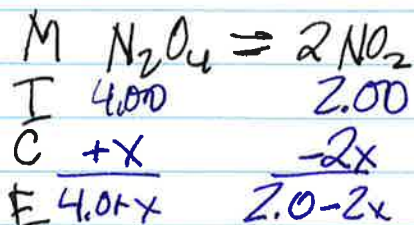 M N₂O₄ ⇌ 2NO₂
I 4.00 2.00
C +x -2x
E 4.0+x 2.0-2x